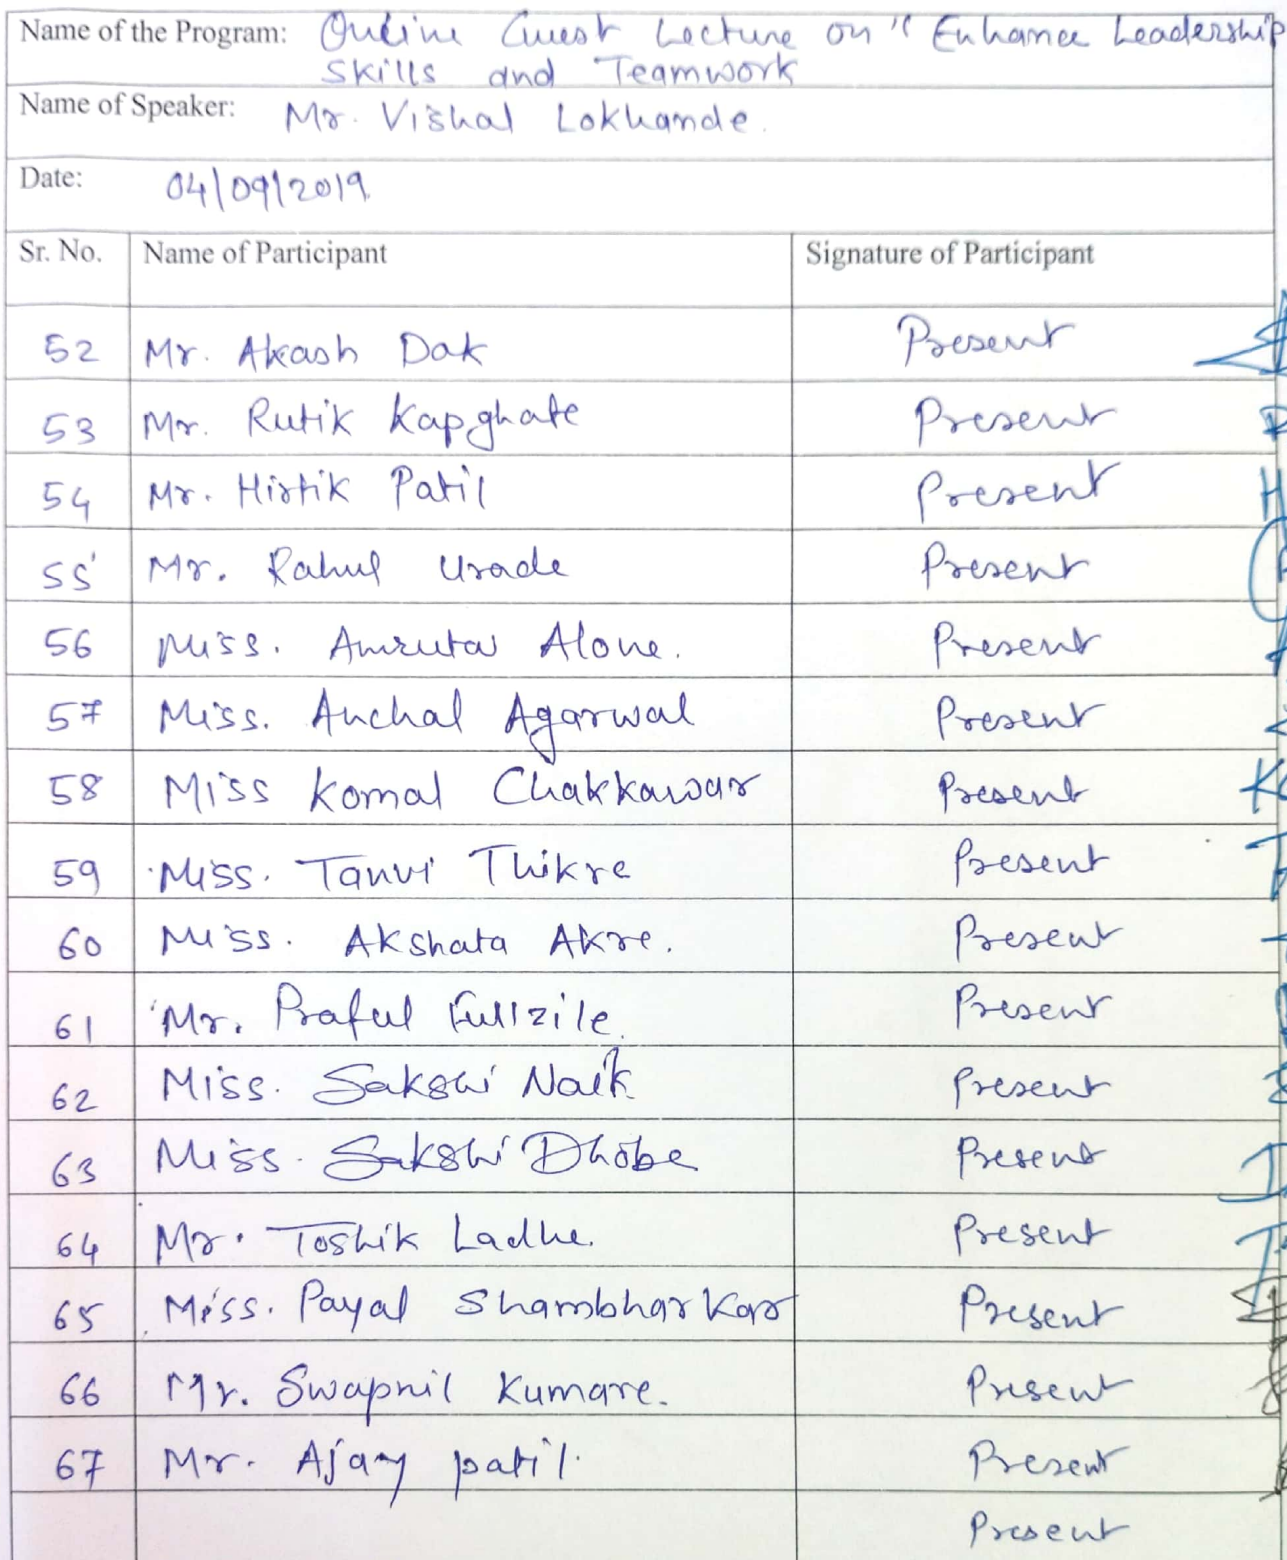 Name of the Program: Online Guest Lecture on "Enhance Leadership
Skills and Teamwork
Name of Speaker: Mr. Vishal Lokhande.
Date: 04/09/2019
Sr. No. Name of Participant Signature of Participant
52 Mr. Akash Dak Present
53 Mr. Rutik Kapghate Present
54 Mr. Hirtik Patil Present
55 Mr. Rahul Urade Present
56 Miss. Amruta Alone. Present
57 Miss. Anchal Agarwal Present
58 Miss Komal Chakkawar Present
59 Miss. Tanvi Thikre Present
60 Miss. Akshata Akre. Present
61 Mr. Praful Fullzile. Present
62 Miss. Sakshi Naik Present
63 Miss. Sakshi Dhobe Present
64 Mr. Toshik Ladhe. Present
65 Miss. Payal Shambharkar Present
66 Mr. Swapnil Kumare. Present
67 Mr. Ajay patil. Present
Present